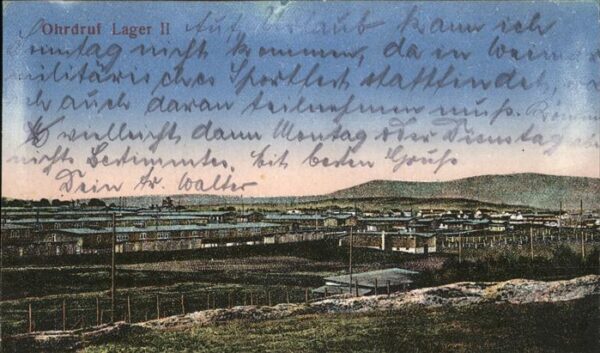 Ohrdruf Lager II
Auf Urlaub kann ich
Sonntag nicht kommen, da in Weimar
militärisches Sportfest stattfindet,
ich auch daran teilnehmen muß.
vielleicht dann Montag oder Dienstag
nichts bestimmtes. Mit besten Gruß
Dein tr. Walter